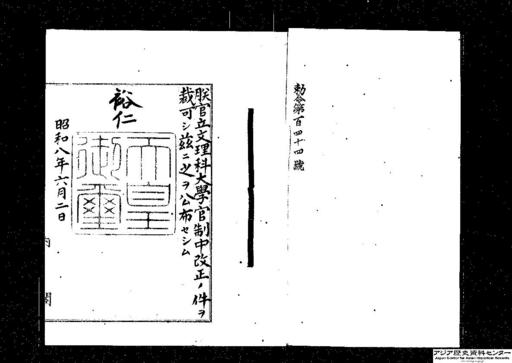 勅令第百四十四號
朕官立文理科大學官制中改正ノ件ヲ
裁可シ玆ニ之ヲ公布セシム
裕仁
天皇御璽
昭和八年六月二日
内閣
アジア歴史資料センター
Japan Center for Asian Historical Records